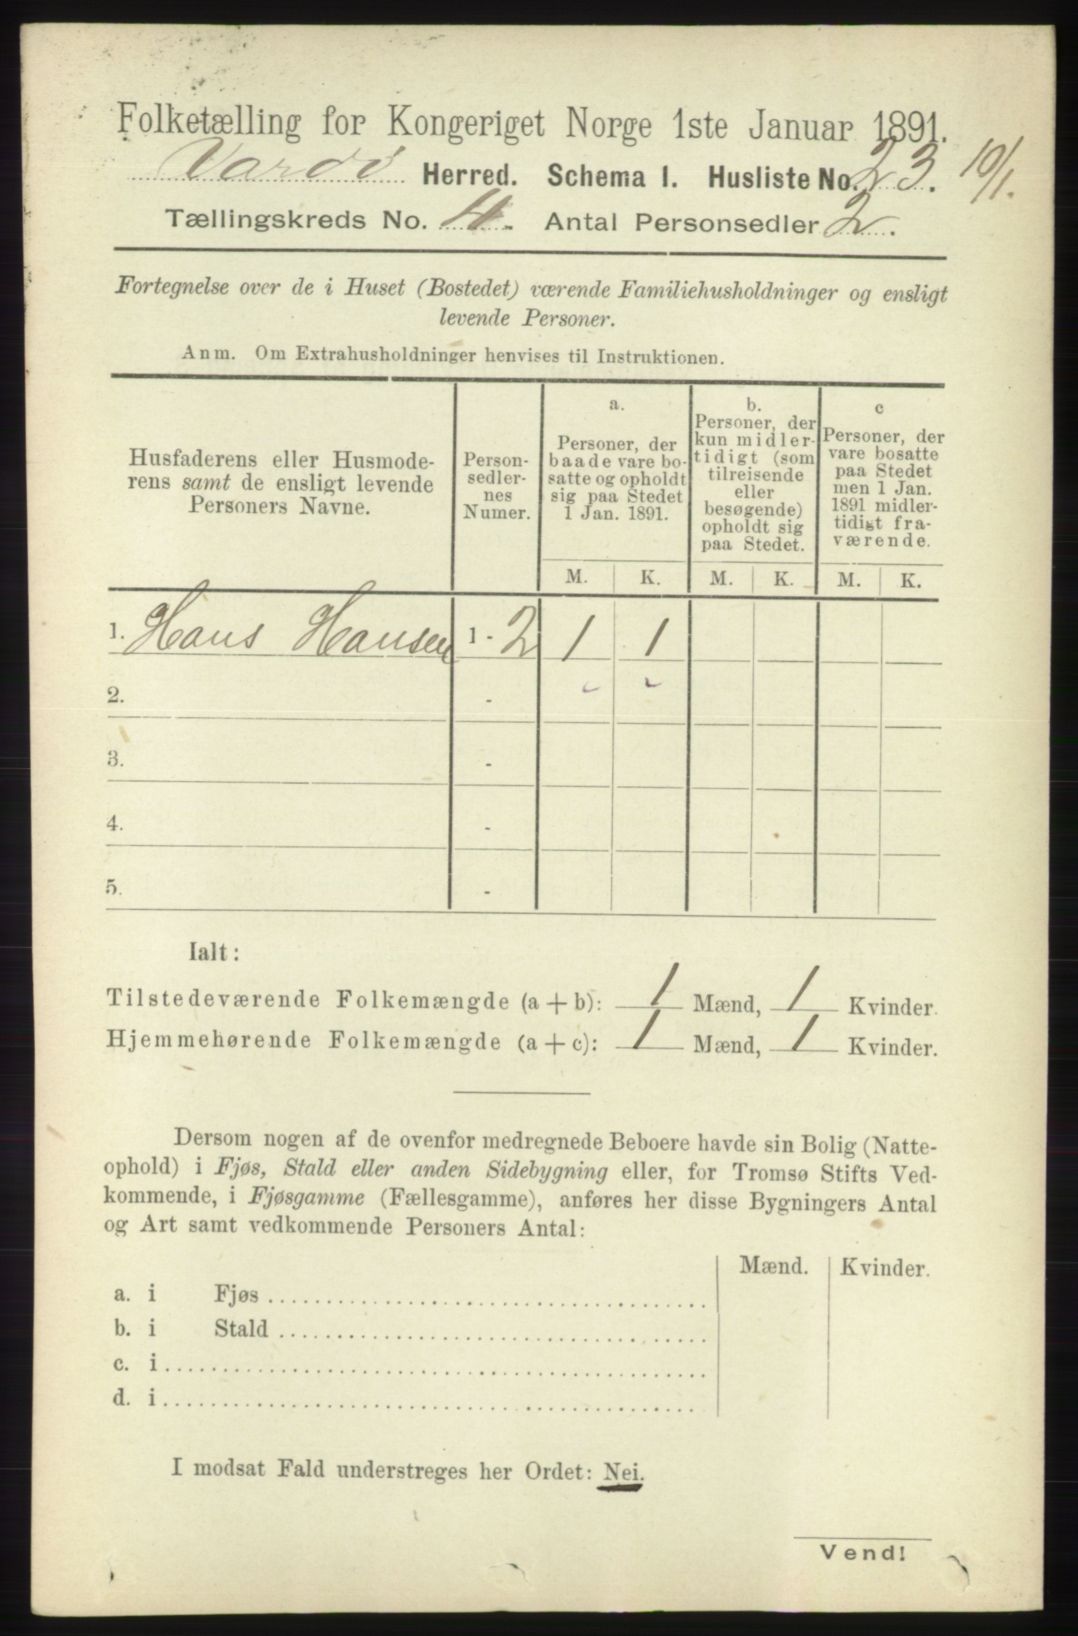 Folketælling for Kongeriget Norge 1ste Januar 1891.
Vardø Herred. Schema 1. Husliste No. 23. 10/1.
Tællingskreds No. 4. Antal Personsedler 2.
Fortegnelse over de i Huset (Bostedet) værende Familiehusholdninger og ensligt
levende Personer.
Anm. Om Extrahusholdninger henvises til Instruktionen.
Husfaderens eller Husmode-
rens samt de ensligt levende
Personers Navne.
Person-
sedler-
nes
Numer.
a.
Personer, der
baade vare bo-
satte og opholdt
sig paa Stedet
1 Jan. 1891.
b.
Personer, der
kun midler-
tidigt (som
tilreisende
eller
besøgende)
opholdt sig
paa Stedet.
c
Personer, der
vare bosatte
paa Stedet
men 1 Jan.
1891 midler-
tidigt fra-
værende.
M. K. M. K. M. K.
1. Hans Hansen 1 - 2 1 1
2. -
3. -
4. -
5. -
Ialt:
Tilstedeværende Folkemængde (a + b): 1 Mænd, 1 Kvinder.
Hjemmehørende Folkemængde (a + c): 1 Mænd, 1 Kvinder.
Dersom nogen af de ovenfor medregnede Beboere havde sin Bolig (Natte-
ophold) i Fjøs, Stald eller anden Sidebygning eller, for Tromsø Stifts Ved-
kommende, i Fjøsgamme (Fællesgamme), anføres her disse Bygningers Antal
og Art samt vedkommende Personers Antal:
Mænd. Kvinder.
a. i Fjøs
b. i Stald
c. i
d. i
I modsat Fald understreges her Ordet: Nei.
Vend!